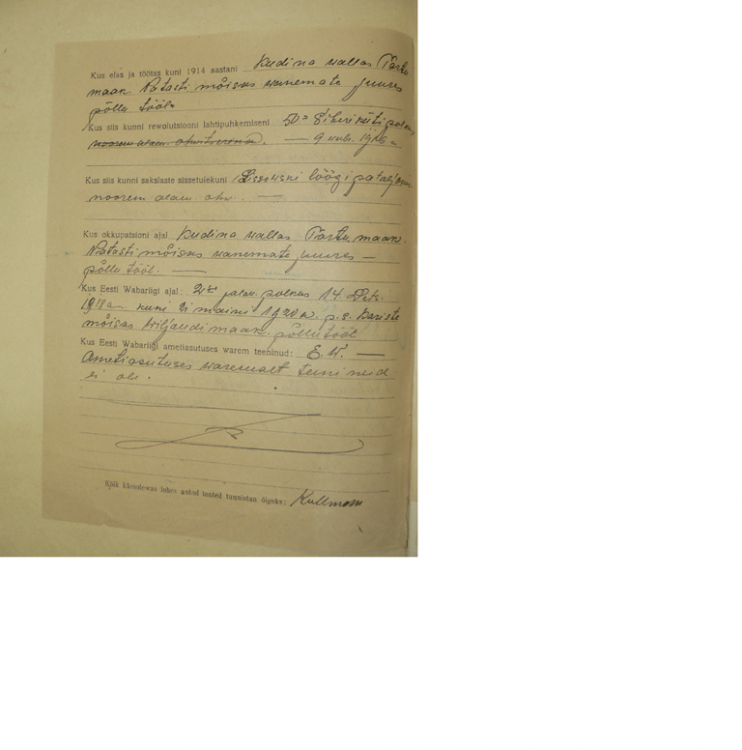 Kus elas ja töötas kuni 1914 aastani Kudina wallas Tartu
maan. Patasti mõisas wanemate juures
põllu tööl.
Kus siis kunni rewolutsiooni lahtipuhkemiseni 5da Siberi küti polgus
noorem alam. ohwitserina. — 9 1916 a.
Kus siis kunni sakslaste sissetulekuni löögi pataljonis
noorem alam. ohw. —
Kus okkupatsioni ajal Kudina wallas Tartu maan.
Patasti mõisas wanemate juures —
põllu tööl. —
Kus Eesti Wabariigi ajal: 2se jalaw. polgus 14. Dets.
1918 a. kuni 21 maini 1920 a. p.s. Kariste
mõisas Wiljandi maan. põllu tööl
Kus Eesti Wabariigi ametiasutuses warem teeninud: E. W. —
Ametiasutuses waremalt teeninud
ei ole.
Kõik käesolewas lehes antud teated tunnistan õigeks: Kullmann